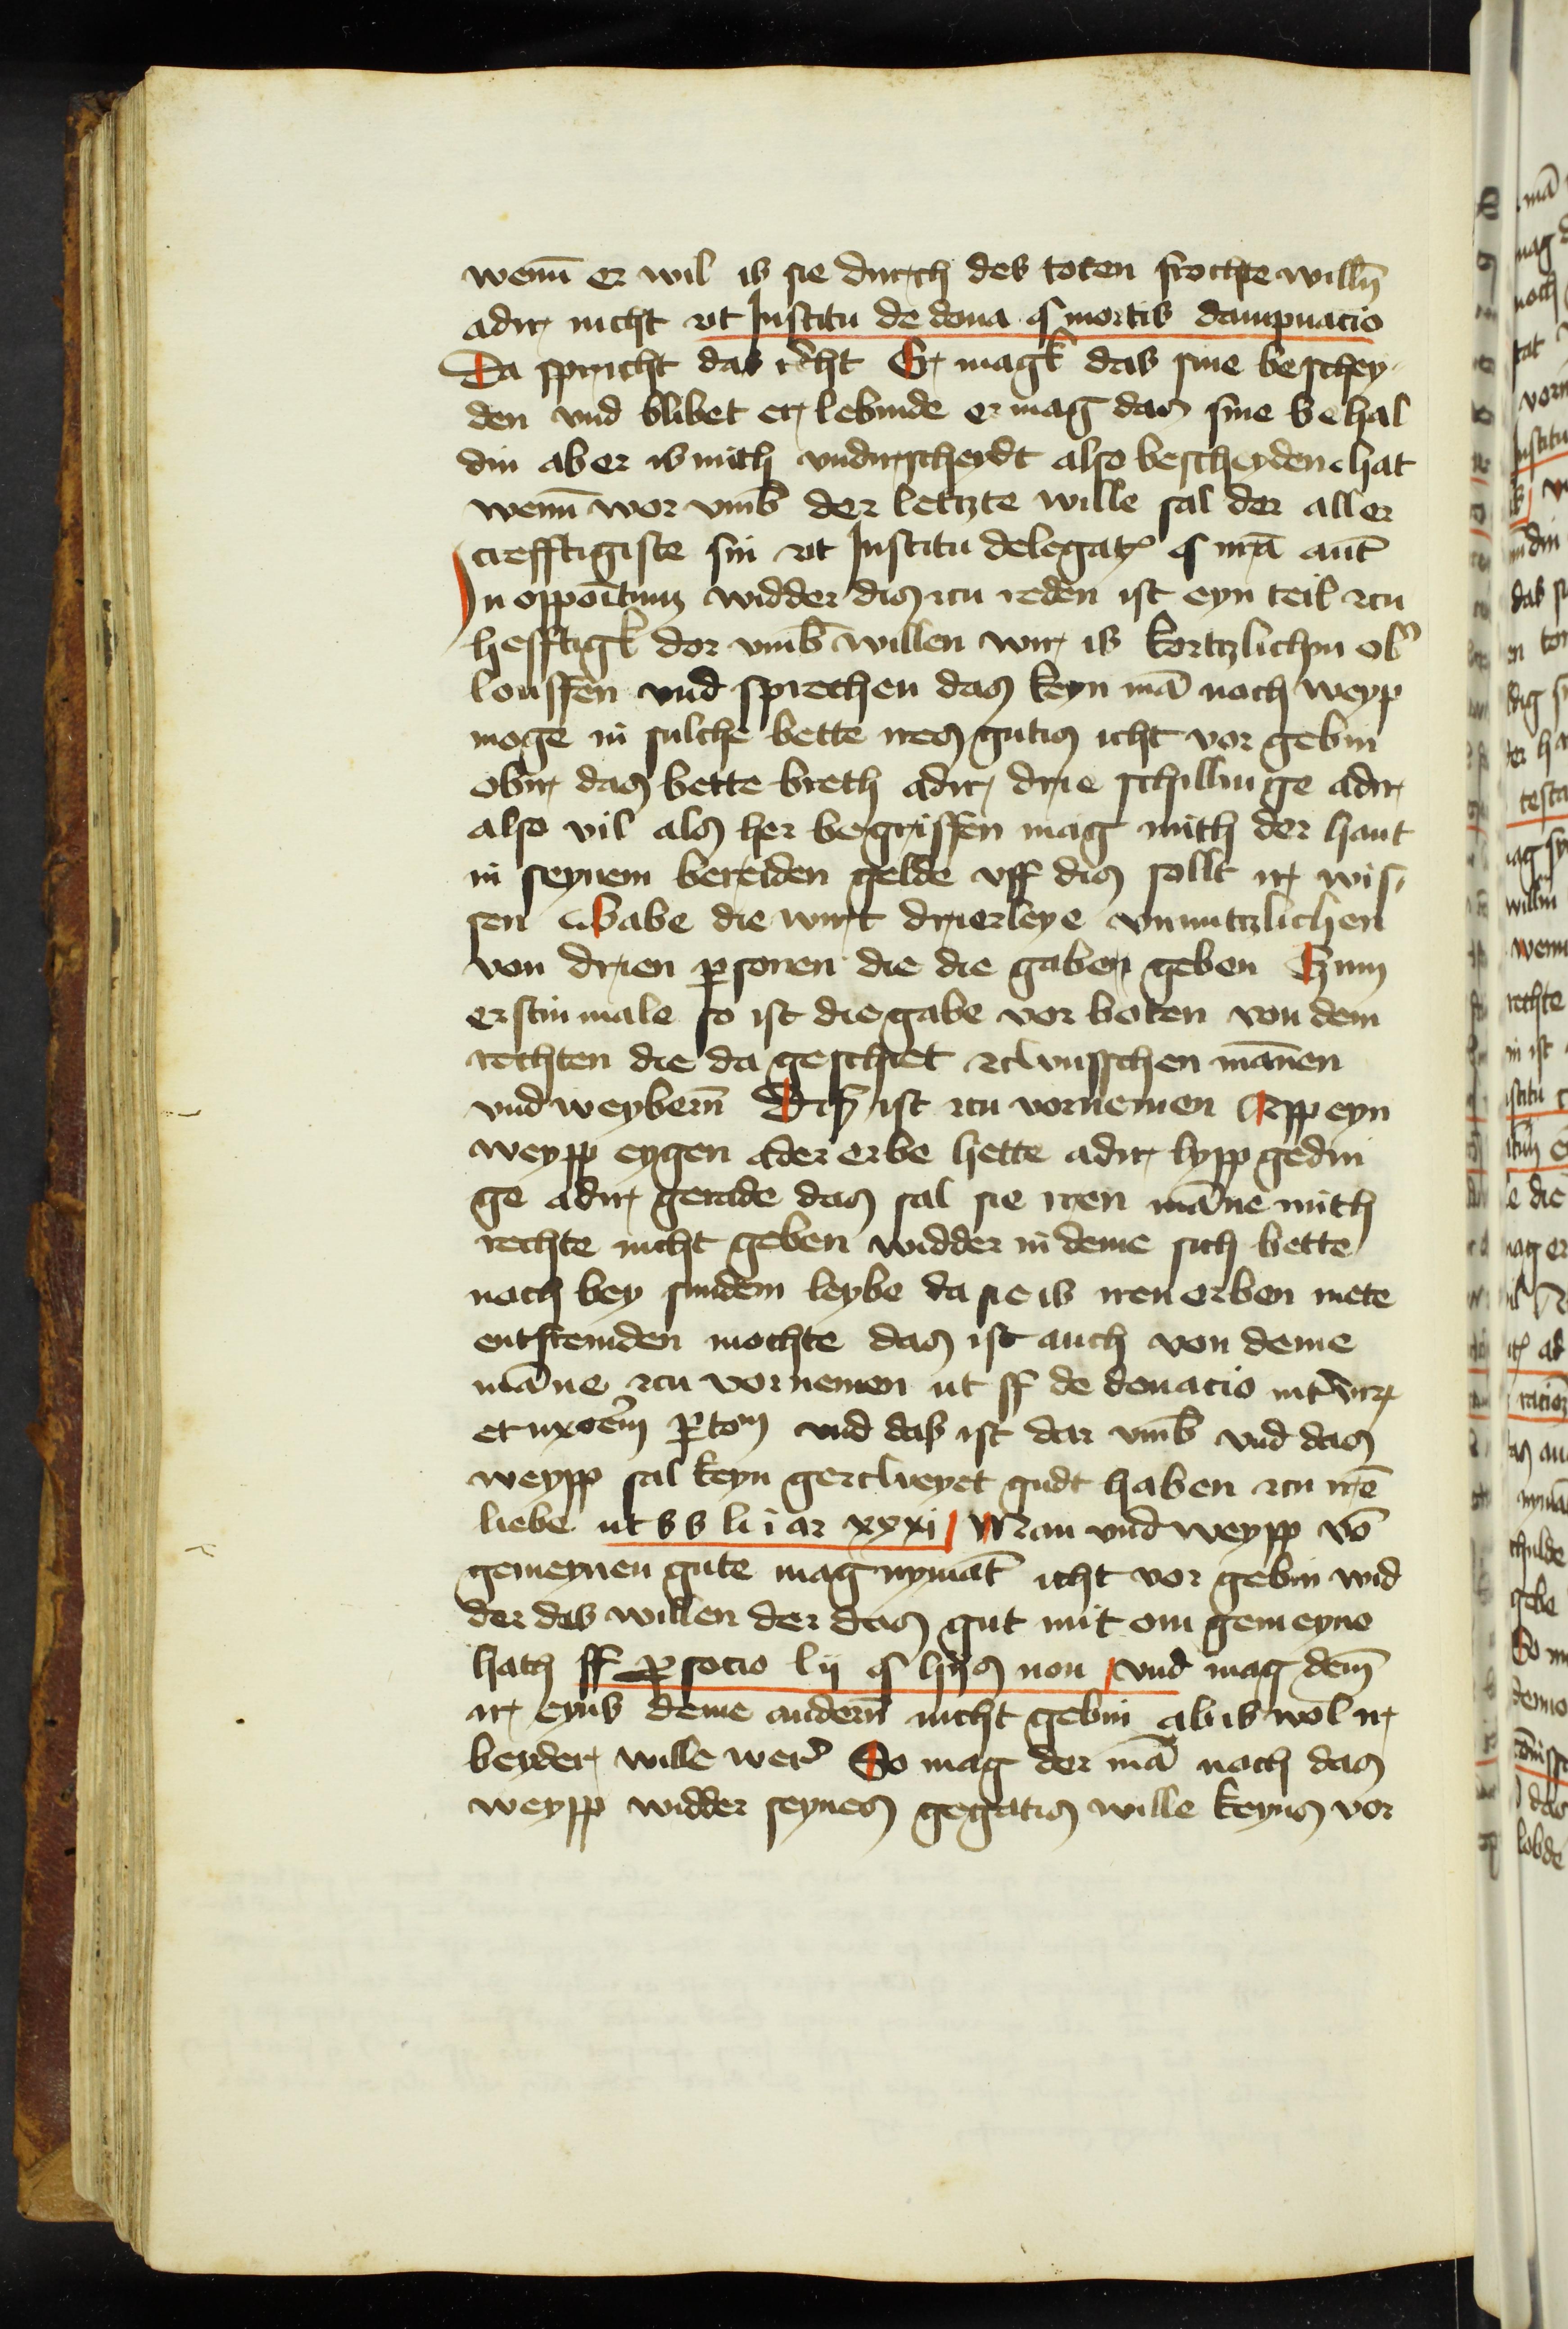 wenn̄ er wil is sie durch des toten frochte willn̄
adir nicht vt Institu de dona § mortis dampnacio
Da spricht das recht Er magk das sine beschey-
den vnd blibet er lebinde er mag das sine behal
din ab er is mith vndirscheydt also bescheyden hat
wenn̄ wor vmb der letzte wille sal der aller
crefftigiste sin vt Institu de legat § nr̄a aut̄
In oppoītum widder dis zcu reden ist eyn teil zcu
hefftigk dor vmb willen wir is kortzlichin ob'
louffen vnd sprechen das keyn mā noch weyp
moge in sulche bette ires gutis icht vor gebin
obir das bette breth adir drie schillinge adir
also vil als her begriffen mag mith der hant
in seynem bereiden gelde vff dis sollt ir wis-
sen Gabe die wirt drierleye vnnutzlichen
von drien ꝑsonen die die gaben geben Czum
erstin male so ist die gabe vorboten von dem
rechten die da geschiet zcwusschen mānen
vnd weybern̄ Dis ist zcu vornemen App eyn
weypp eygen ader erbe hette adir lypp gedin
ge adir gerade das sal sie iren māne mith
rechte nicht geben widder in deme sich bette
noch bey sundem leybe da sie is iren erben mete
entfremden mochte das ist auch von deme
māne zcu vornemen ut ff de donacio int' vir
et uxorem ꝑ tom vnd das ist dar vmb vnd das
weypp sal keyn gerczweyet gudt haben zcu irē
liebe ut ss li i ar xxxi Man vnd weypp vō
gemeynen gute mag nymāt icht vor gebin wid
der des willen der das gut mit om gemeyne
hath ff ꝓ socio lij § hijs non vnd mag dem̄
ir eyns deme andern̄ nicht gebin ab is wol ir
beyder wille wer' So mag der mā noch das
weypp widder seynes gegatis wille keyns vor